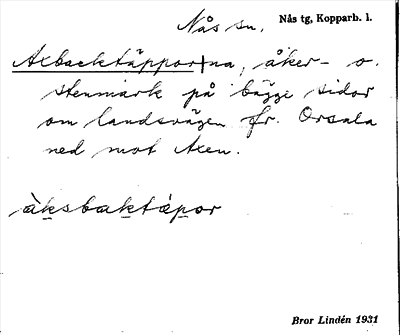 Nås sn. Nås tg, Kopparb. l.
Axbacktäppor+na, åker- o.
stenmark på bägge sidor
om landsvägen fr. Orsala
ned mot Axen.
àksbaktápor
Bror Lindén 1931